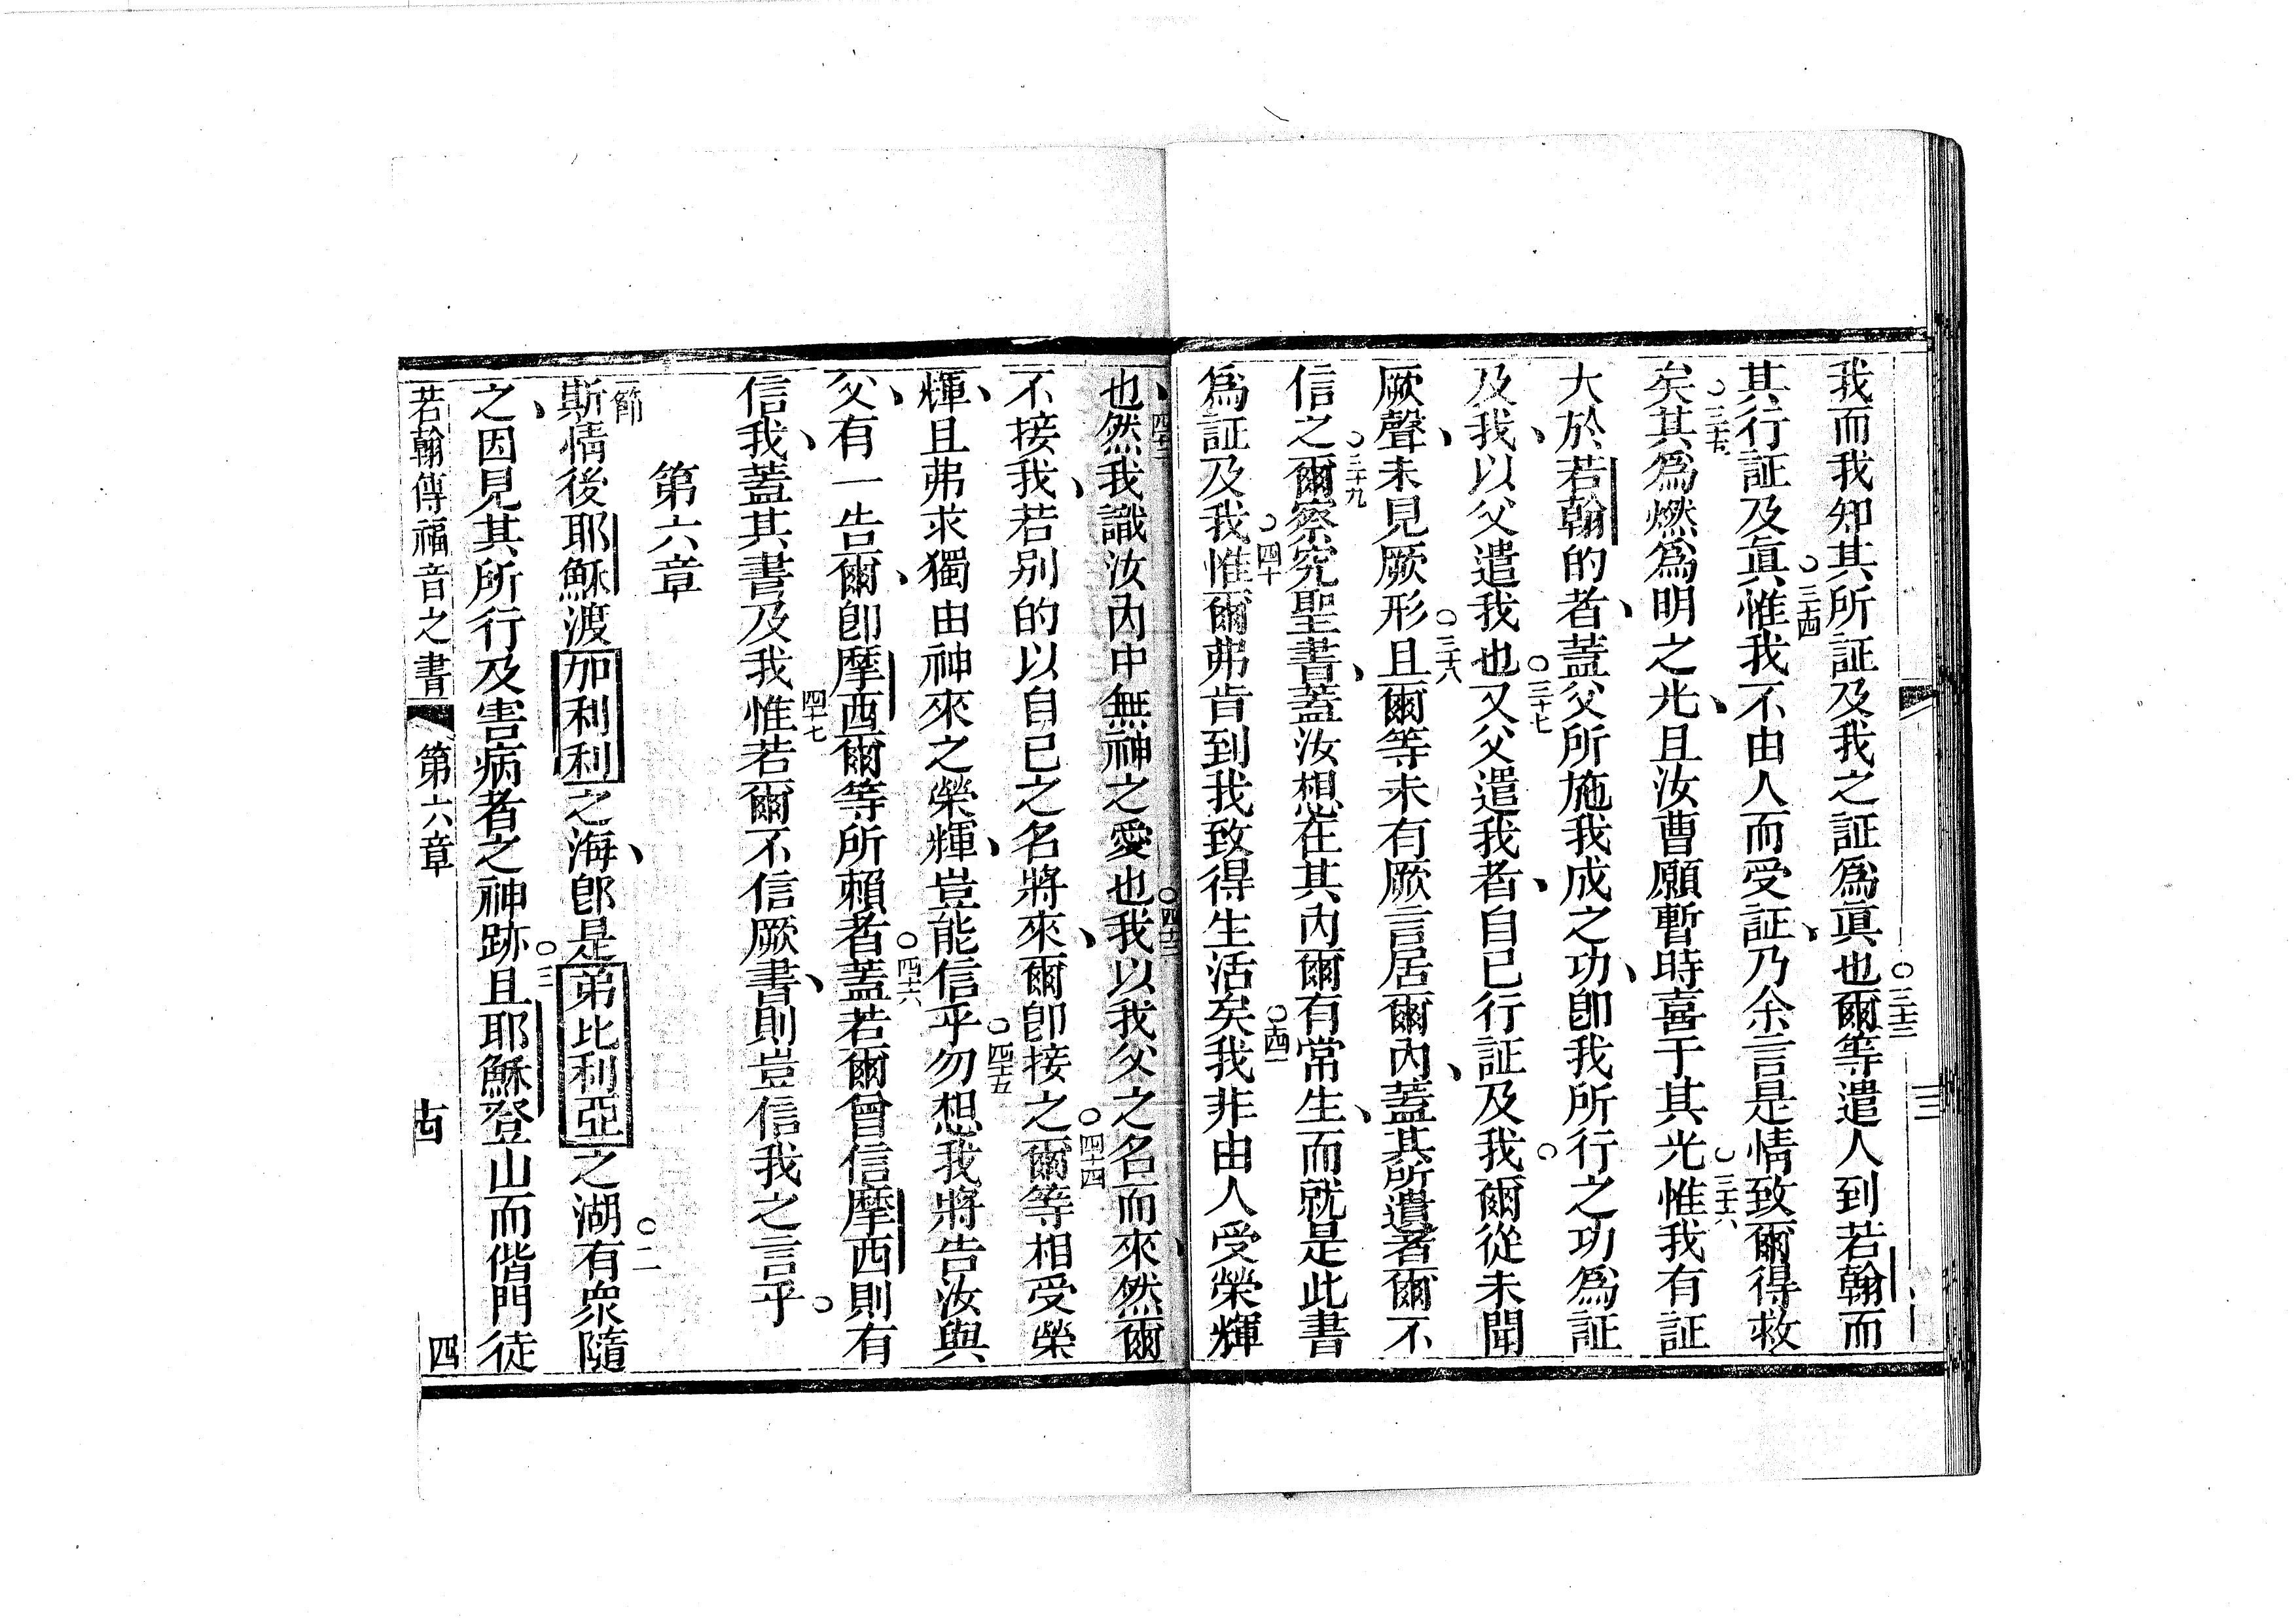 我而我知其所証及我之証爲眞也○三十三爾等遣人到若翰而
其行証及眞○三十四惟我不由人而受証、乃余言是情致爾得救
矣○三十五其爲燃爲明之光、且汝曹願暫時喜于其光○三十六惟我有証
大於若翰的者、蓋父所施我成之功、卽我所行之功爲証
及我、以父遣我也○三十七又父遣我者、自已行証及我○爾從未聞
厥聲、未見厥形○三十八且爾等未有厥言居爾內、蓋其所遣者爾不
信之○三十九爾察究聖書、蓋汝想在其內爾有常生、而就是此書
爲証及我○四十惟爾弗肯到我致得生活矣○四十一我非由人受榮輝
也、四十二然我識汝內中無神之愛也○四十三我以我父之名而來、然爾
不接我、若别的以自已之名將來、爾卽接之○四十四爾等相受榮
輝、且弗求獨由神來之榮輝、豈能信乎○四十五勿想我將告汝與
父、有一告爾、卽摩西爾等所賴者○四十六蓋若爾曾信摩西則有
信我、蓋其書及我四十七惟若爾不信厥書、則豈信我之言乎○
第六章
節斯情後耶穌渡加利利之海、卽是弟比利亞之湖○二有衆隨
之、因見其所行及害病者之神跡○三且耶穌登山而偕門徒
若翰傳福音之書 第六章 十四 四